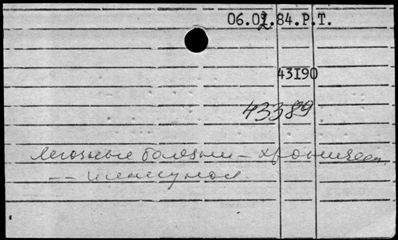 06.02.84.P.T.
43I90
43389
легочные болезни – хроническ